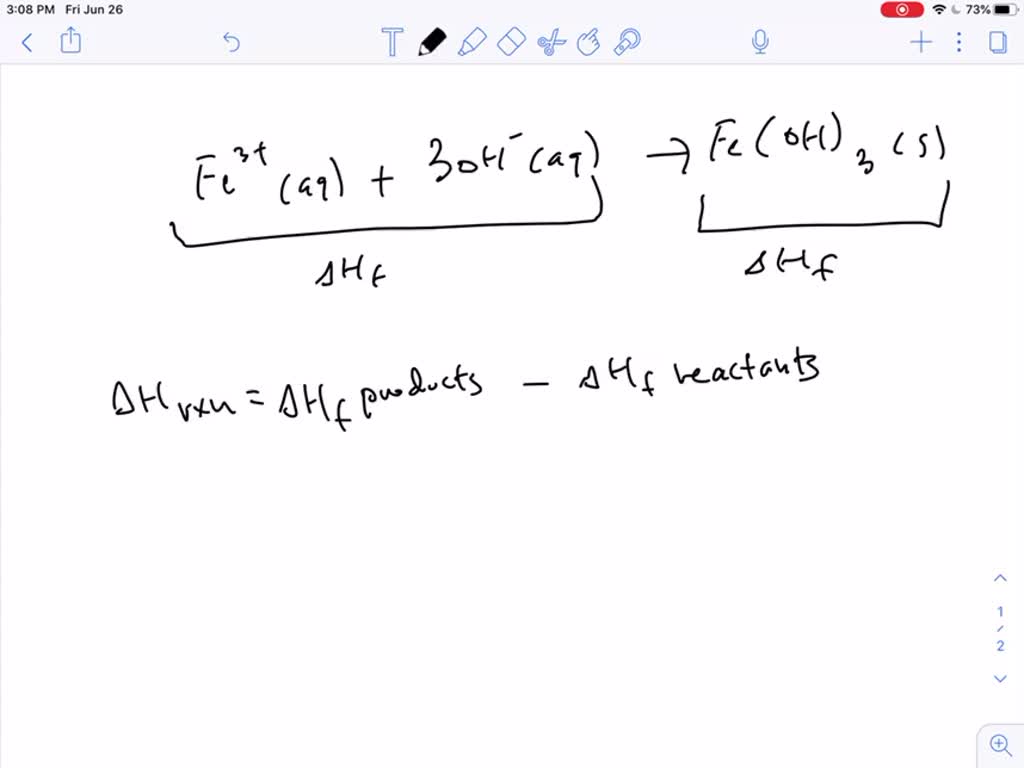 3:08 PM Fri Jun 26 73%
Fe³⁺ (aq) + 3OH⁻ (aq) → Fe(OH)₃ (s)
ΔHf ΔHf
ΔHrxn = ΔHf products – ΔHf reactants
1
/
2